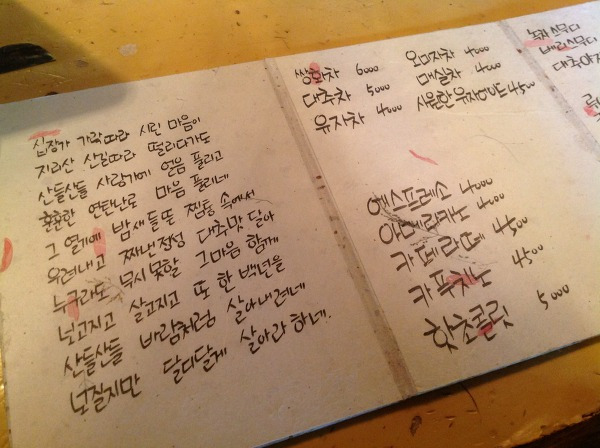 십장가 가락따라 시린 마음이
지리산 산길따라 떨리다가도
산들산들 사랑가에 얼음 풀리고
훈훈한 연탄난로 마음 풀리네
그 열기에 밤새 들뜬 찜통 속에서
우려내고 짜낸 정성 대추맛 닮아
누구라도 무시못할 그마음 함께
넋고지고 살고지고 또 한 백년을
산들산들 바람처럼 살아내려네
넋질지만 달디달게 살아라 하네.
쌍화차 6000
대추차 5000
유자차 4000
오미자차 4000
매실차 4000
시원한유자에이드 4500
에스프레소 4000
아메리카노 4000
카페라떼 4500
카푸치노 4500
핫초콜릿 5000
녹차스무디
베리스무디